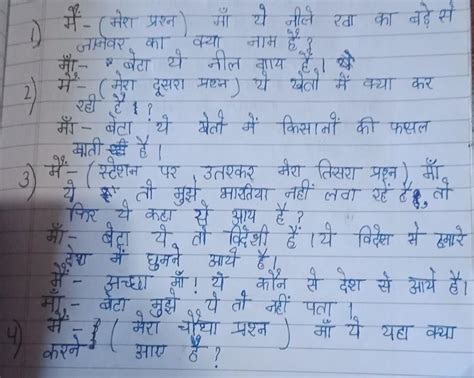 1) मैं - (मेरा प्रश्न) माँ ये नीले रंग का बड़े से
जानवर का क्या नाम है?
माँ - बेटा ये नील गाय है।
2) मैं - (मेरा दूसरा प्रश्न) ये खेतों में क्या कर
रही है?
माँ - बेटा ये खेतों में किसानों की फसल
खाती है।
3) मैं - (स्टेशन पर उतरकर मेरा तिसरा प्रश्न) माँ
ये तो मुझे भारतिया नहीं लग रहें हैं, तो
फिर ये कहा से आये है?
माँ - बेटा ये तो विदेशी हैं। ये विदेश से हमारे
देश में घुमने आये है।
मैं - अच्छा माँ! ये कौन से देश से आये है।
माँ - बेटा मुझे ये तो नहीं पता।
4) मैं - (मेरा चौथा प्रश्न) माँ ये यहा क्या
करने आए है?